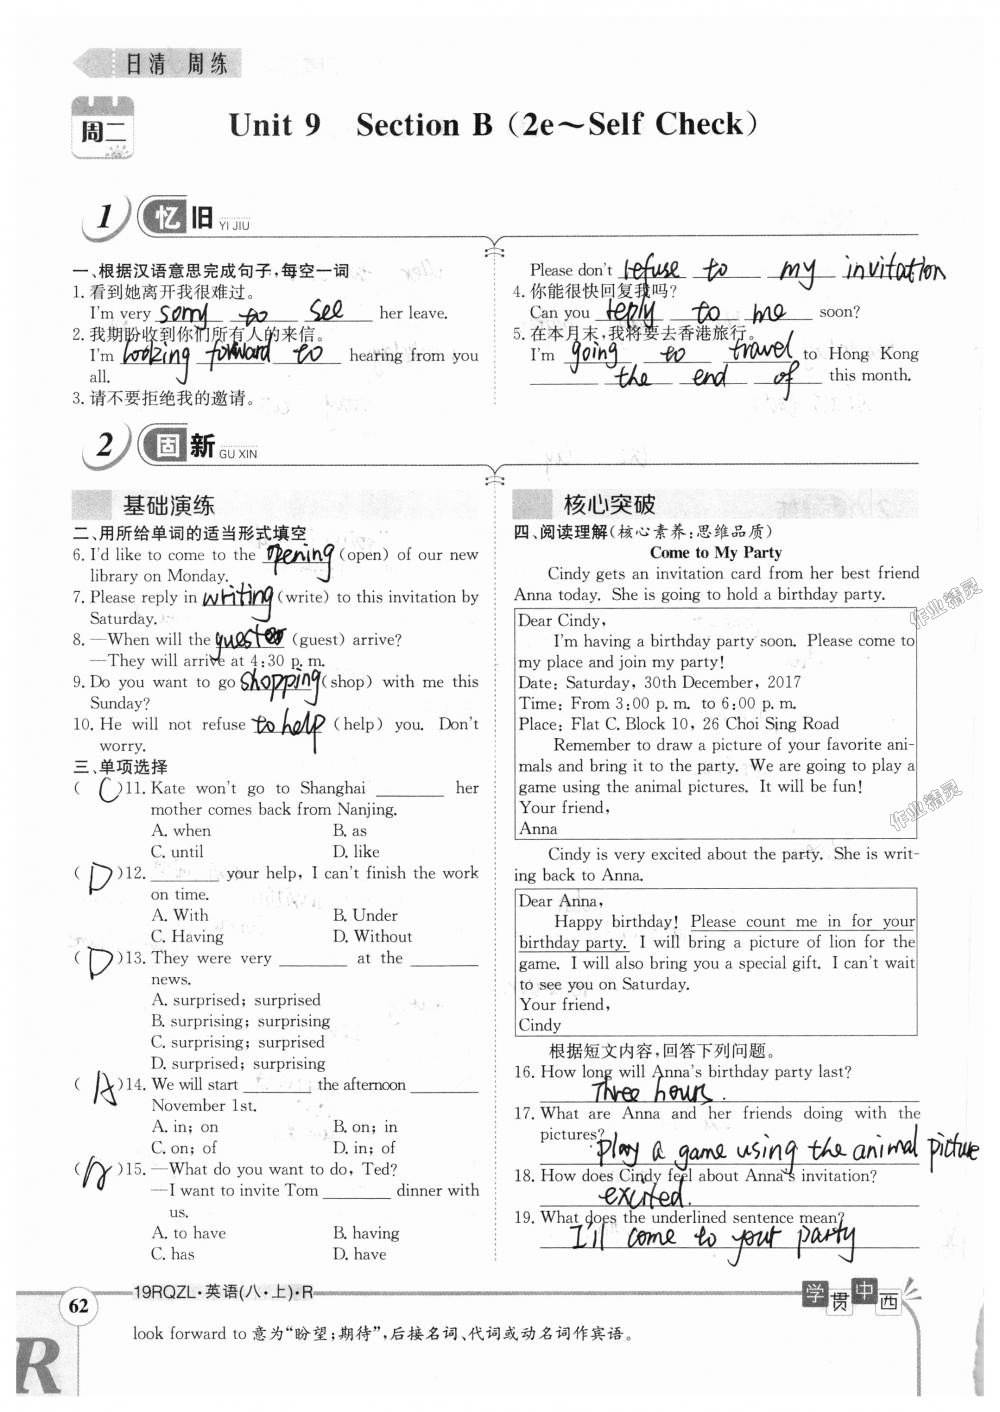 日清 周练
周二
Unit 9 Section B (2e～Self Check)
1 忆旧 YI JIU
一、根据汉语意思完成句子,每空一词
1. 看到她离开我很难过。
I'm very sorry to see her leave.
2. 我期盼收到你们所有人的来信。
I'm looking forward to hearing from you
all.
3. 请不要拒绝我的邀请。
Please don't refuse to my invitation
4. 你能很快回复我吗?
Can you reply to me soon?
5. 在本月末,我将要去香港旅行。
I'm going to travel to Hong Kong
the end of this month.
2 固新 GU XIN
基础演练
二、用所给单词的适当形式填空
6. I'd like to come to the opening (open) of our new
library on Monday.
7. Please reply in writing (write) to this invitation by
Saturday.
8. —When will the guests (guest) arrive?
—They will arrive at 4:30 p. m.
9. Do you want to go shopping (shop) with me this
Sunday?
10. He will not refuse to help (help) you. Don't
worry.
三、单项选择
( C )11. Kate won't go to Shanghai ________ her
mother comes back from Nanjing.
A. when B. as
C. until D. like
( D )12. ________ your help, I can't finish the work
on time.
A. With B. Under
C. Having D. Without
( D )13. They were very ________ at the ________
news.
A. surprised; surprised
B. surprising; surprising
C. surprising; surprised
D. surprised; surprising
( A )14. We will start ________ the afternoon ________
November 1st.
A. in; on B. on; in
C. on; of D. in; of
( A )15. —What do you want to do, Ted?
—I want to invite Tom ________ dinner with
us.
A. to have B. having
C. has D. have
核心突破
四、阅读理解(核心素养:思维品质)
Come to My Party
Cindy gets an invitation card from her best friend
Anna today. She is going to hold a birthday party.
Dear Cindy,
I'm having a birthday party soon. Please come to
my place and join my party!
Date: Saturday, 30th December, 2017
Time: From 3:00 p. m. to 6:00 p. m.
Place: Flat C. Block 10, 26 Choi Sing Road
Remember to draw a picture of your favorite ani-
mals and bring it to the party. We are going to play a
game using the animal pictures. It will be fun!
Your friend,
Anna
Cindy is very excited about the party. She is writ-
ing back to Anna.
Dear Anna,
Happy birthday! Please count me in for your
birthday party. I will bring a picture of lion for the
game. I will also bring you a special gift. I can't wait
to see you on Saturday.
Your friend,
Cindy
根据短文内容,回答下列问题。
16. How long will Anna's birthday party last?
Three hours.
17. What are Anna and her friends doing with the
pictures?
play a game using the animal picture
18. How does Cindy feel about Anna's invitation?
excited.
19. What does the underlined sentence mean?
I'll come to your party
作业精灵
作业精灵
62
19RQZL·英语(八·上)·R
学贯中西
look forward to 意为“盼望;期待”,后接名词、代词或动名词作宾语。
R